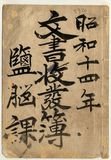 昭和十四年
文書收發簿
鹽腦課